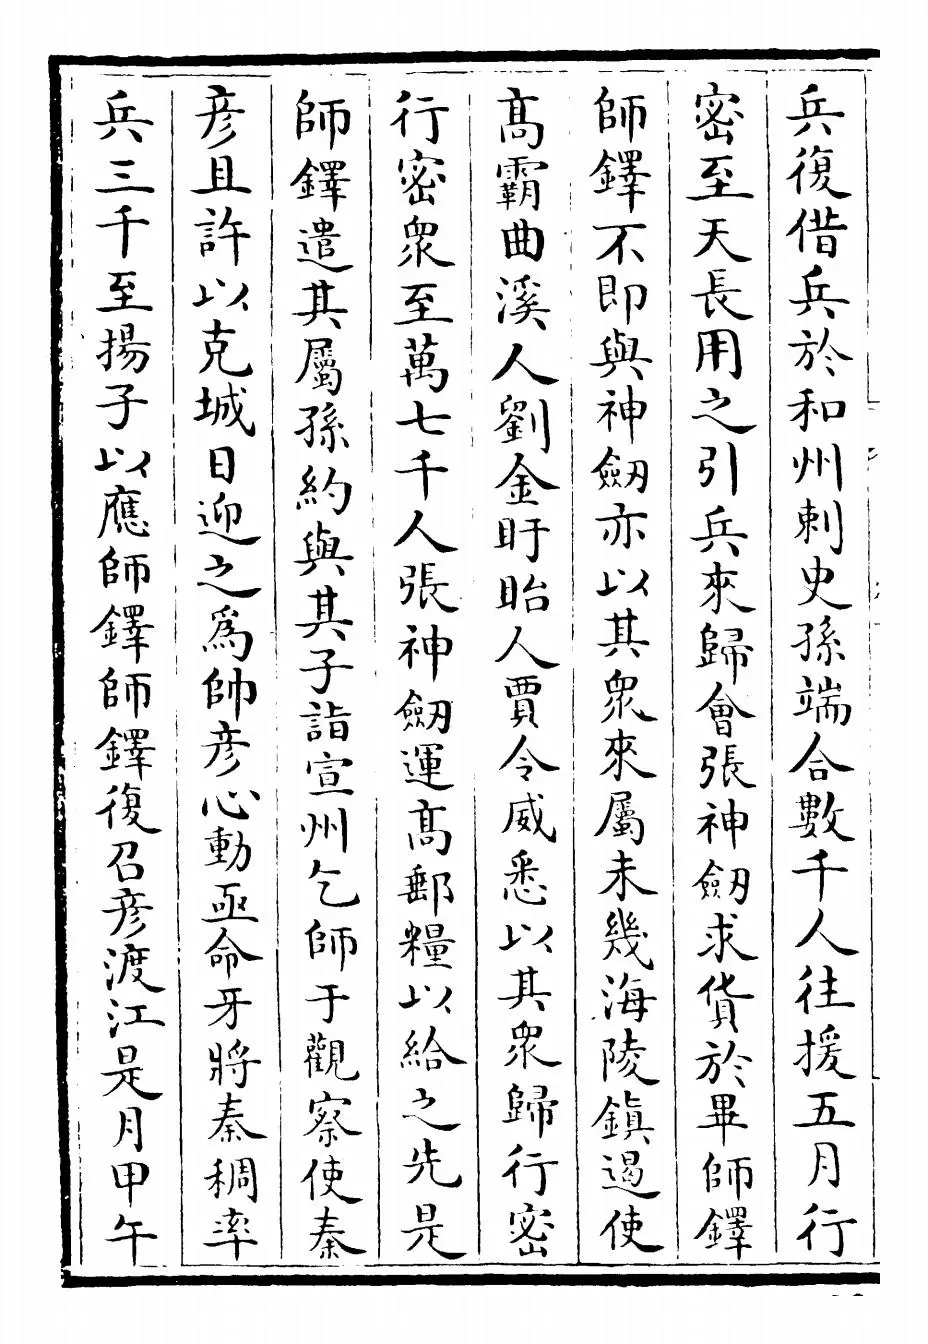 兵復借兵於和州刺史孫端合數千人往援五月行
密至天長用之引兵來歸會張神劒求貨於畢師鐸
師鐸不即與神劒亦以其衆來屬未幾海陵鎮遏使
髙霸曲溪人劉金盱眙人賈令威悉以其衆歸行密
行密衆至萬七千人張神劒運髙郵糧以給之先是
師鐸遣其屬孫約與其子詣宣州乞師于觀察使秦
彦且許以克城日迎之為帥彦心動亟命牙將秦稠率
兵三千至揚子以應師鐸師鐸復召彦渡江是月甲午